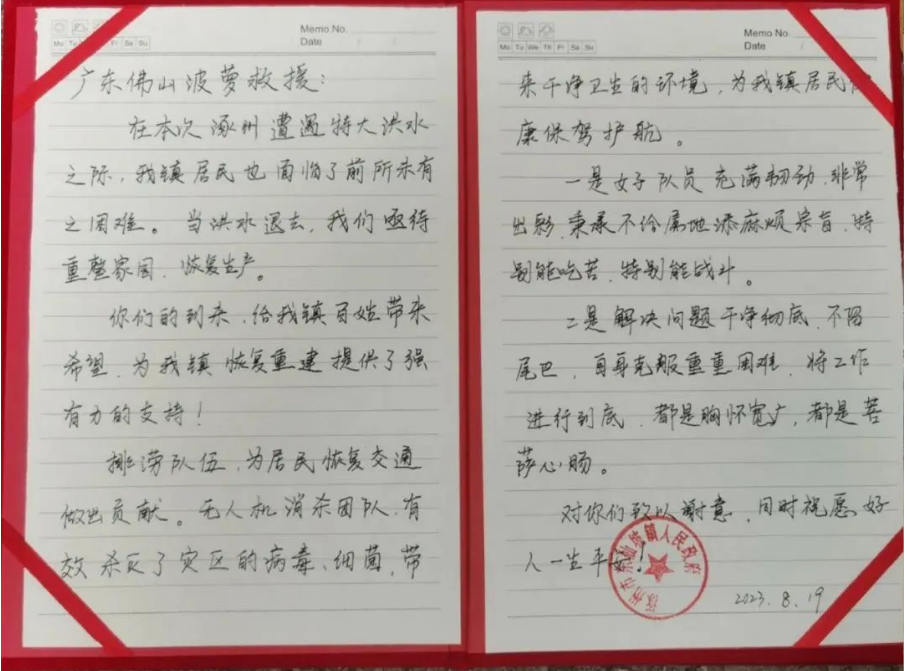 Memo No.
Mo Tu Fr Sa Su
Date
广东佛山菠萝救援：
在本次涿州遭遇特大洪水
之际，我镇居民也面临了前所未有
之困难。当洪水退去，我们亟待
重整家园、恢复生产。
你们的到来，给我镇百姓带来
希望，为我镇恢复重建提供了强
有力的支持！
排涝队伍，为居民恢复交通
做出贡献。无人机消杀团队，有
效杀灭了灾区的病毒、细菌，带
Memo No.
Mo Tu We Th Fr Sa Su
Date
来干净卫生的环境，为我镇居民健
康保驾护航。
一是女子队员充满韧劲、非常
出彩，秉承不给属地添麻烦宗旨，特
别能吃苦，特别能战斗。
二是解决问题干净彻底，不留
尾巴，自身克服重重困难，将工作
进行到底，都是胸怀宽广，都是菩
萨心肠。
对你们致以谢意，同时祝愿好
人一生平安！
镇人民政府
2023.8.19